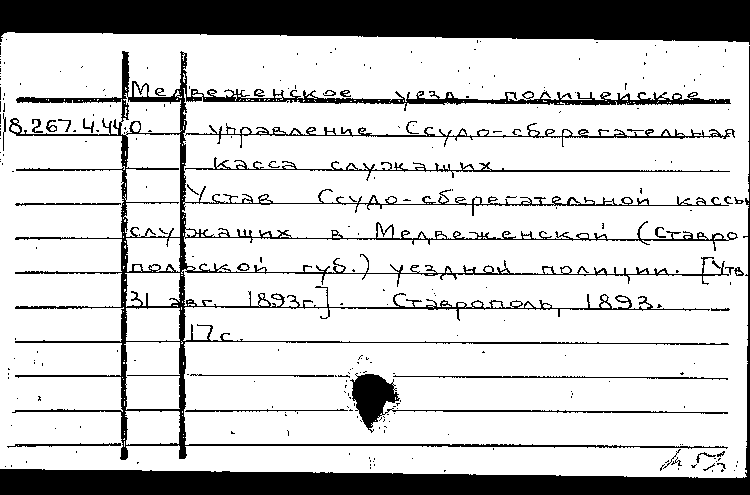 Медвеженское уезд. полицейское
8.267.4.440. управление Ссудо-сберегательная
касса служащих.
Устав Ссудо-сберегательной кассы
служащих в Медвеженской (Ставро-
польской губ.) уездной полиции. [Утв.
31 авг. 1893г.]. Ставрополь, 1893.
17с.